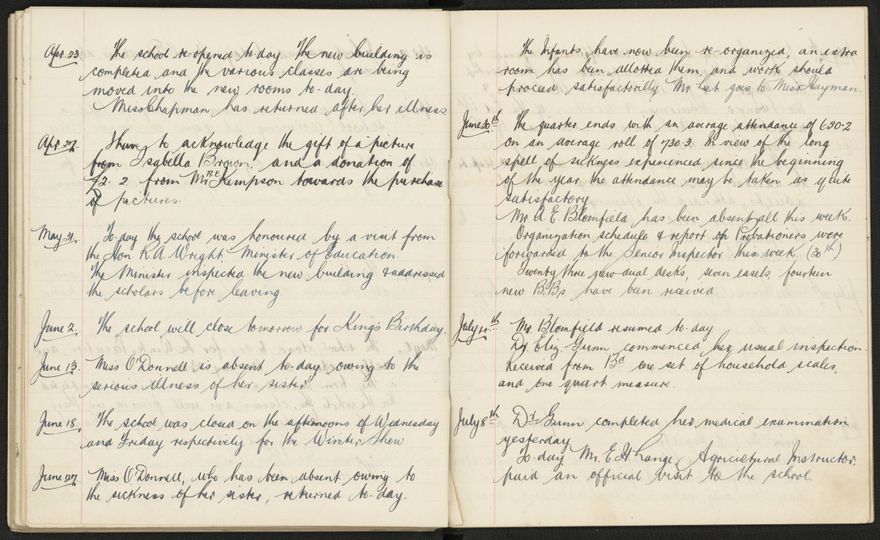 Apr. 23. The school re-opened to-day. The new building is
completed and the various classes are being
moved into the new rooms to-day.
Miss Chapman has returned after her illness
Apr. 27. I have to acknowledge the gift of a picture
from Isabella Brown, and a donation of
£2. 2 from Mr Kempson towards the purchase
of pictures.
May 31. To-day the school was honoured by a visit from
the Hon R.A. Wright, Minister of Education.
The Minister inspected the new building & addressed
the scholars before leaving.
June 2. The school will close tomorrow for King's Birthday.
June 13. Miss O'Donnell, is absent to-day owing to the
serious illness of her sister.
June 18. The school was closed on the afternoons of Wednesday
and Friday respectively for the Winter Show
June 27. Miss O'Donnell, who has been absent owing to
the sickness of her sister, returned to-day.
The Infants have now been re-organized, an extra
room has been allotted them, and work should
proceed satisfactorily. goes to Miss Hayman.
June 30th The quarter ends with an average attendance of 630.2
on an average roll of 730.3. In view of the long
spell of sickness experienced since the beginning
of the year the attendance may be taken as quite
satisfactory
Mr. A E Blomfield has been absent all this week.
Organization schedule & report on Probationers were
forwarded to the Senior Inspector this week (30th)
Twenty three new dual desks, seven easels fourteen
new B.Bs have been received.
July Mr Blomfield resumed to-day
Dr Eliz Gunn commenced her usual inspection.
Received from Bd one set of household scales,
and one quart measure.
July 8th Dr Gunn completed her medical examination
yesterday
To-day Mr. E H Lange, Agricultural Instructor.
paid an official visit to the school